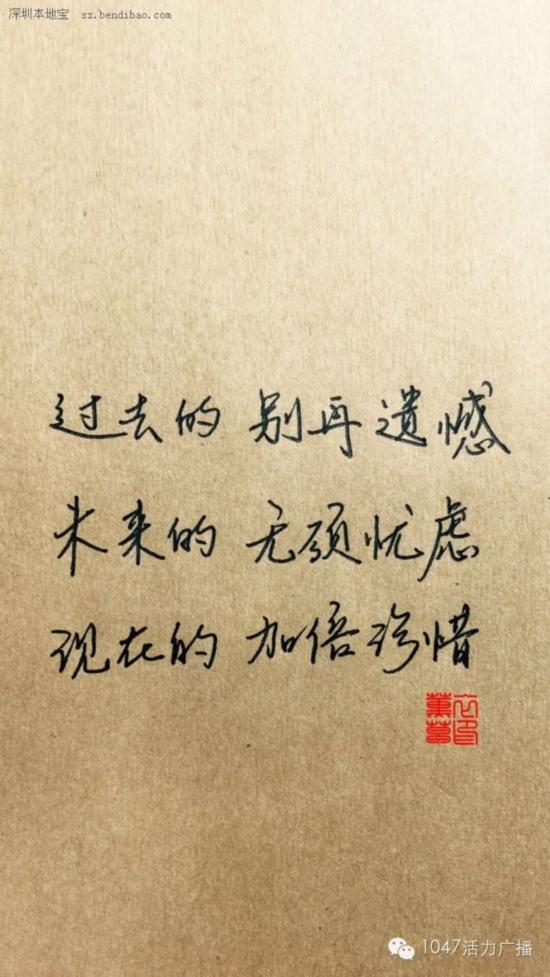 深圳本地宝 sz.bendibao.com
过去的 别再遗憾
未来的 无须忧虑
现在的 加倍珍惜
1047活力广播